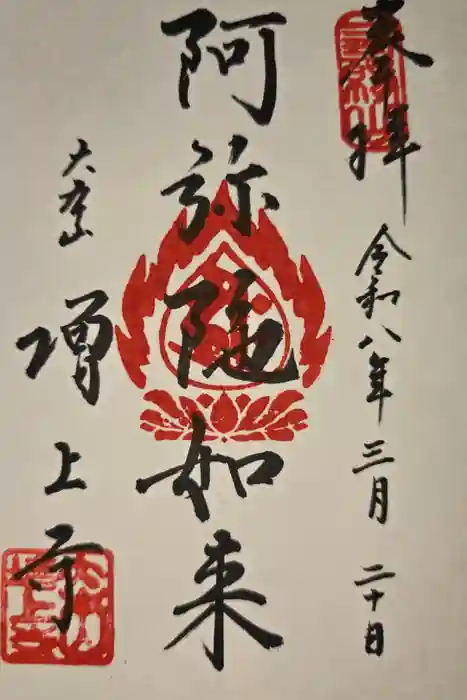 奉拝
令和八年三月二十日
阿弥陀如来
大本山
増上寺